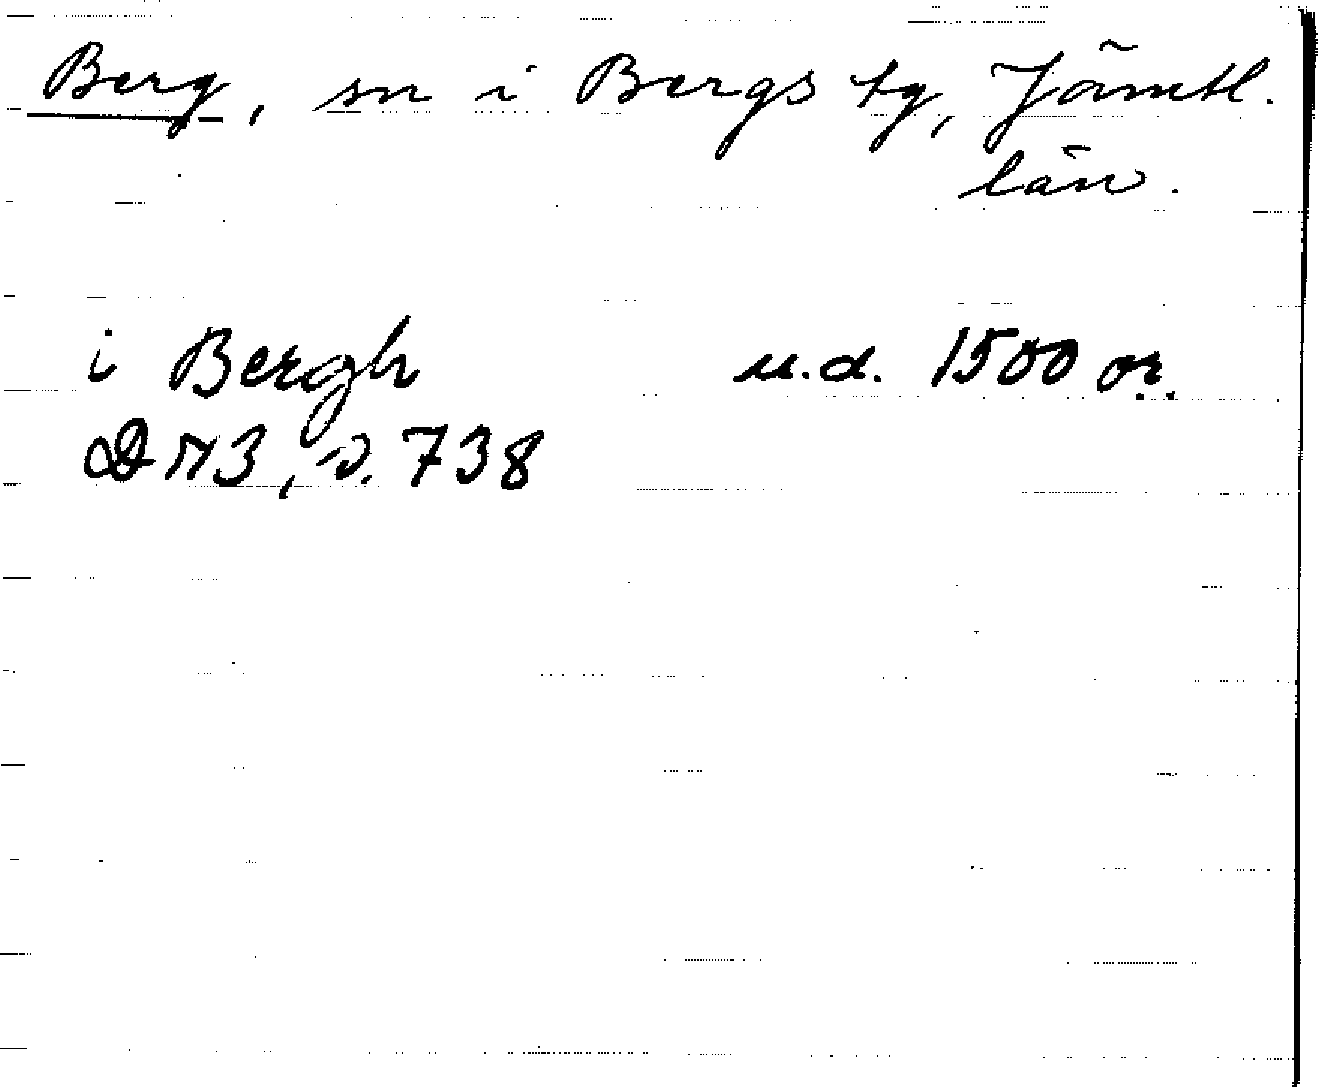 Berg, sn i Bergs tg, Jämtl.
län.
i Bergh u.d. 1500 or.
DN3, s. 738